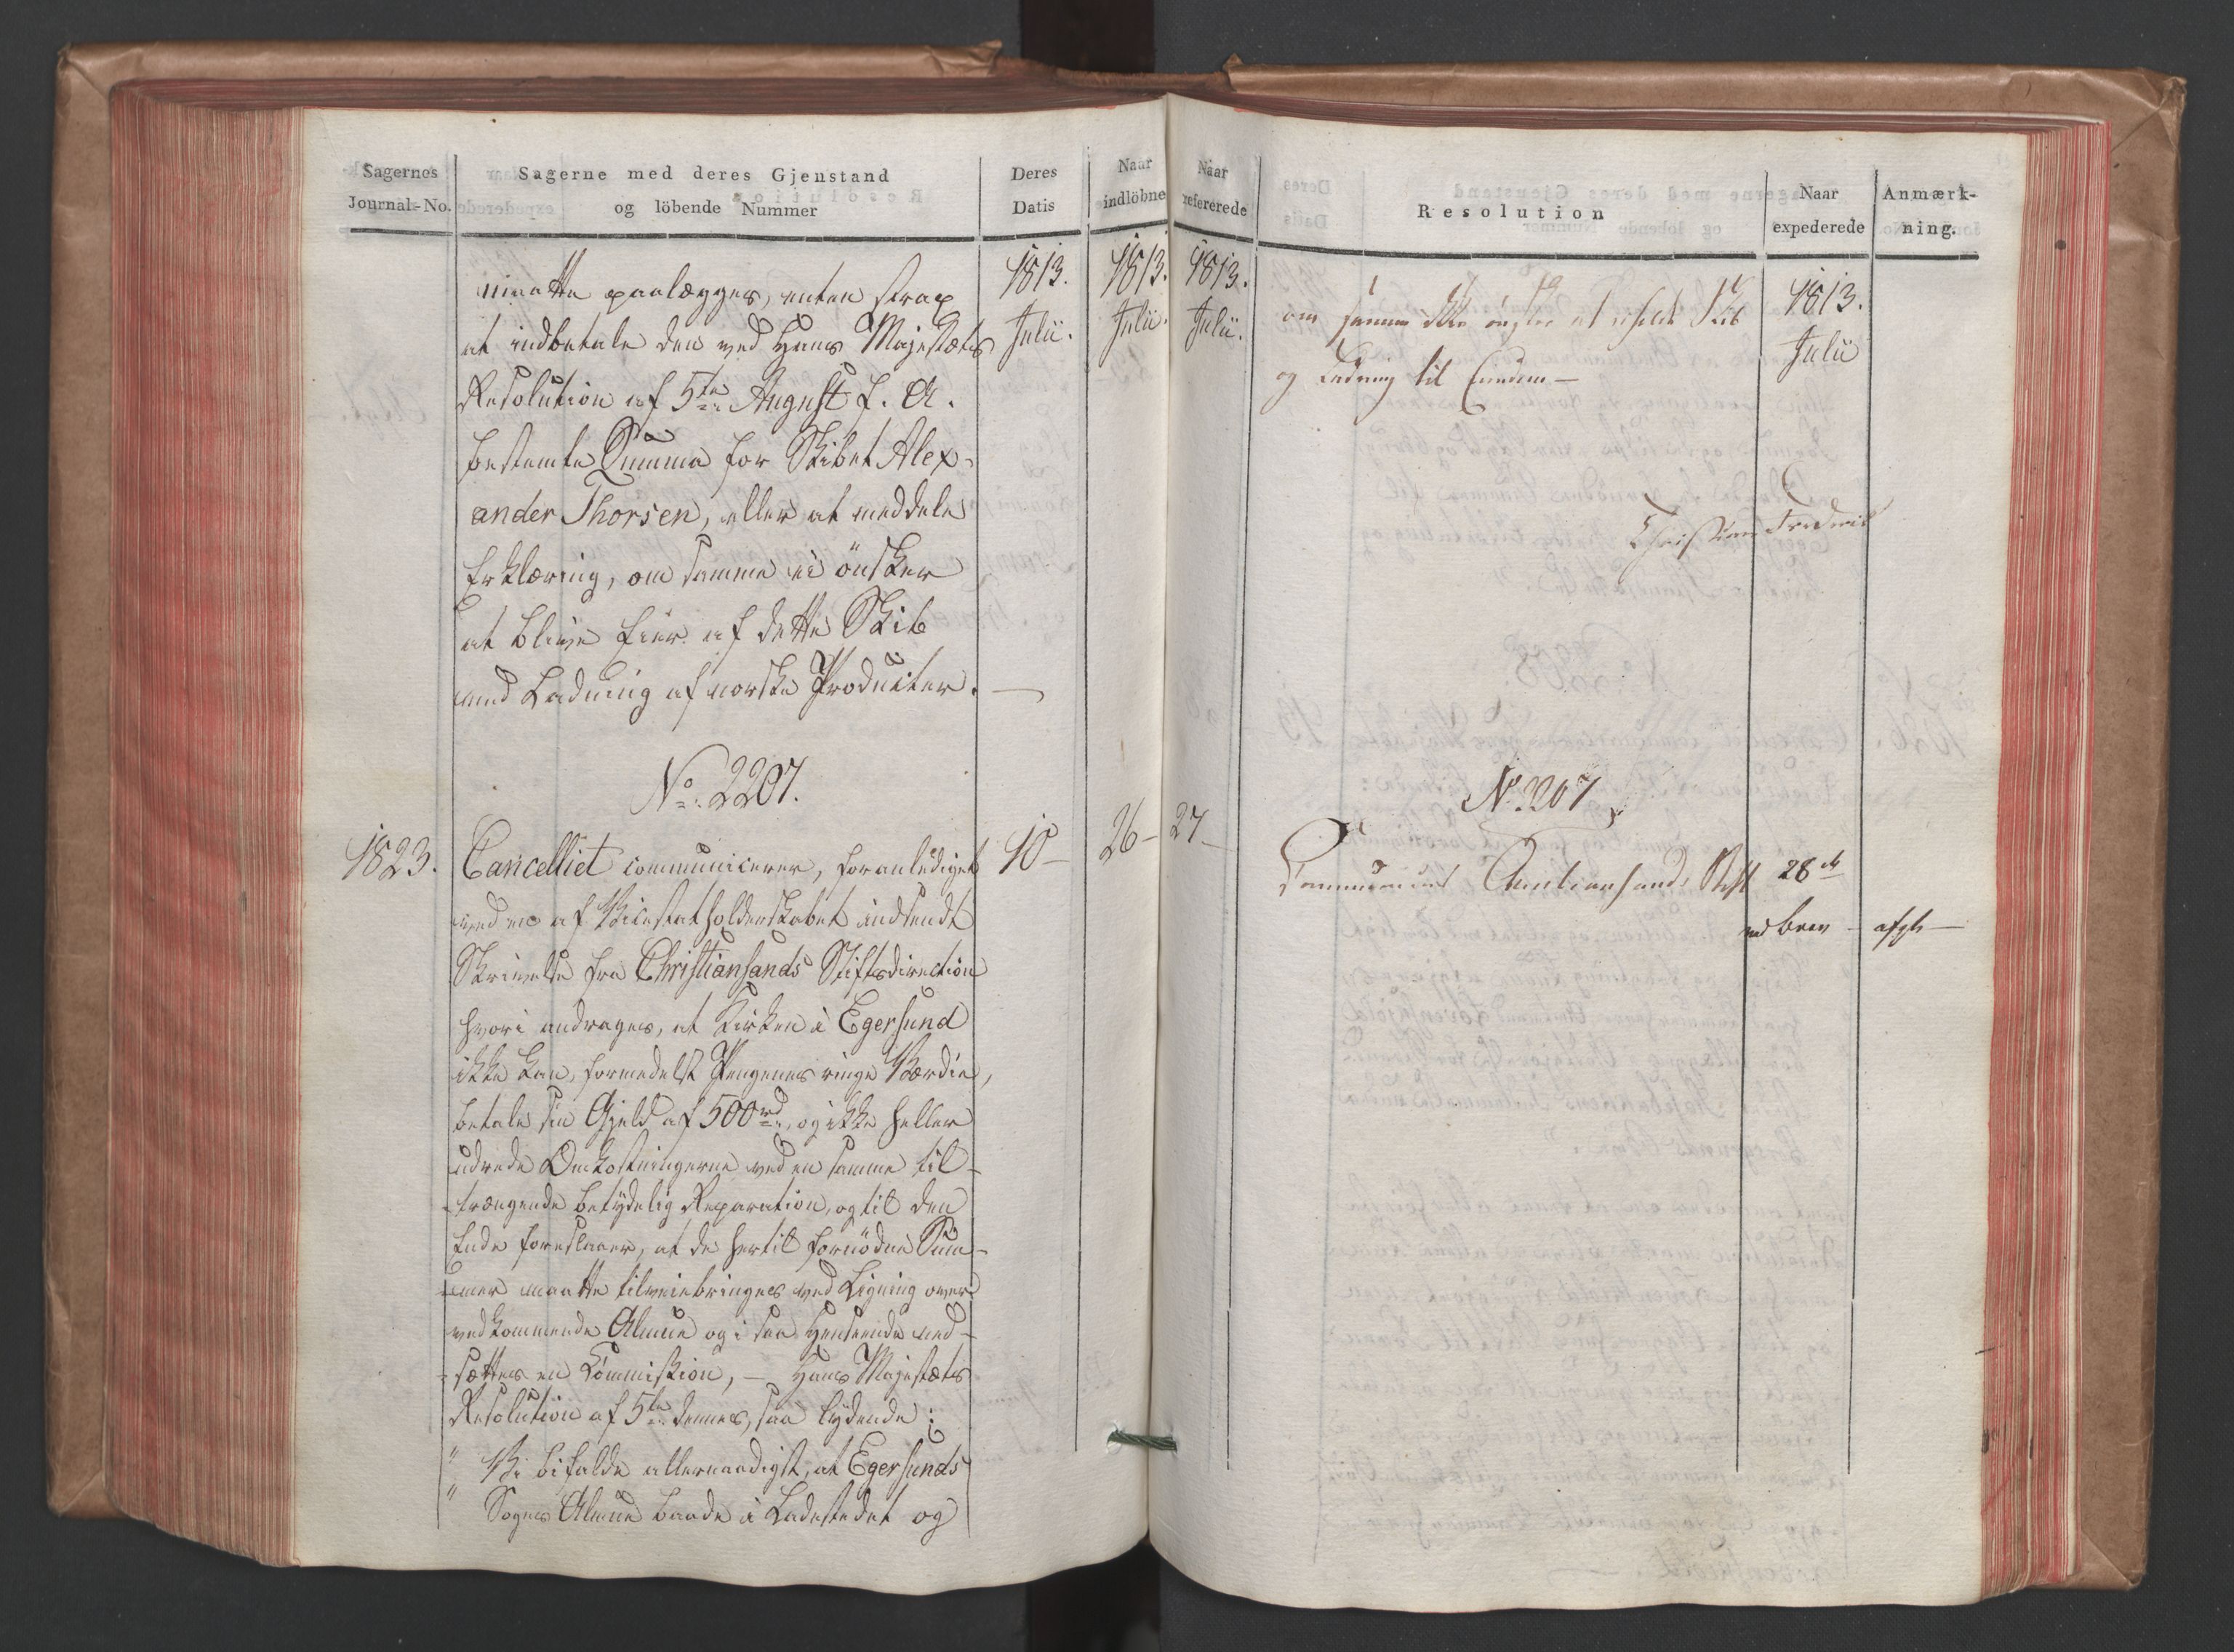 Sagernes
Journal-No.
Sagerne med deres Gjenstand
og löbende Nummer
Deres
Datis
Naar
indlöbne
maatte paalægges, enten strax
at indbetale den ved Hans Majestæts
Resolution af 5te August f. A.
bestemte Summa for Skibet Alex-
ander Thorsen, eller at meddele
Erklæring, om samme ei önsker
at blive Eier af dette Skib
med Ladning af norske Producter.
1813.
Julii.
1813.
Julii.
No. 2207.
1823.
Cancelliet communicerer, foranlediget
ved en af Vicestatholderskabet indsendt
Skrivelse fra Christiansands Stiftsdirection
hvori andrages, at Kirken i Egersund
ikke kan, formedelst Pengenes ringe Værdie,
betale sin Gjeld af 500 rd, og ikke heller
udrede Omkostningerne ved en samme til-
trængende betydelig Reparation, og til den
Ende foreslaaer, at de hertil fornödne Sum-
mer maatte tilveiebringes ved Ligning over
vedkommende Almue og i saa Henseende ned-
sættes en Commission, — Hans Majestæts
Resolution af 5te dennes, saa lydende:
" Vi bifalde allernaadigst, at Egersunds
" Sogns Almue baade i Ladestedet og
10 —
26 —
Naar
refererede
Resolution
Naar
expederede
Anmærk-
ning.
1813.
Julii.
om samme ikke önsker at Skib
og Ladning til Eiendom —
1813.
Julii
Christian Frederik
27 —
No. 2207
Communiceres Christiansands Stift
28de
ved brev — afgk —